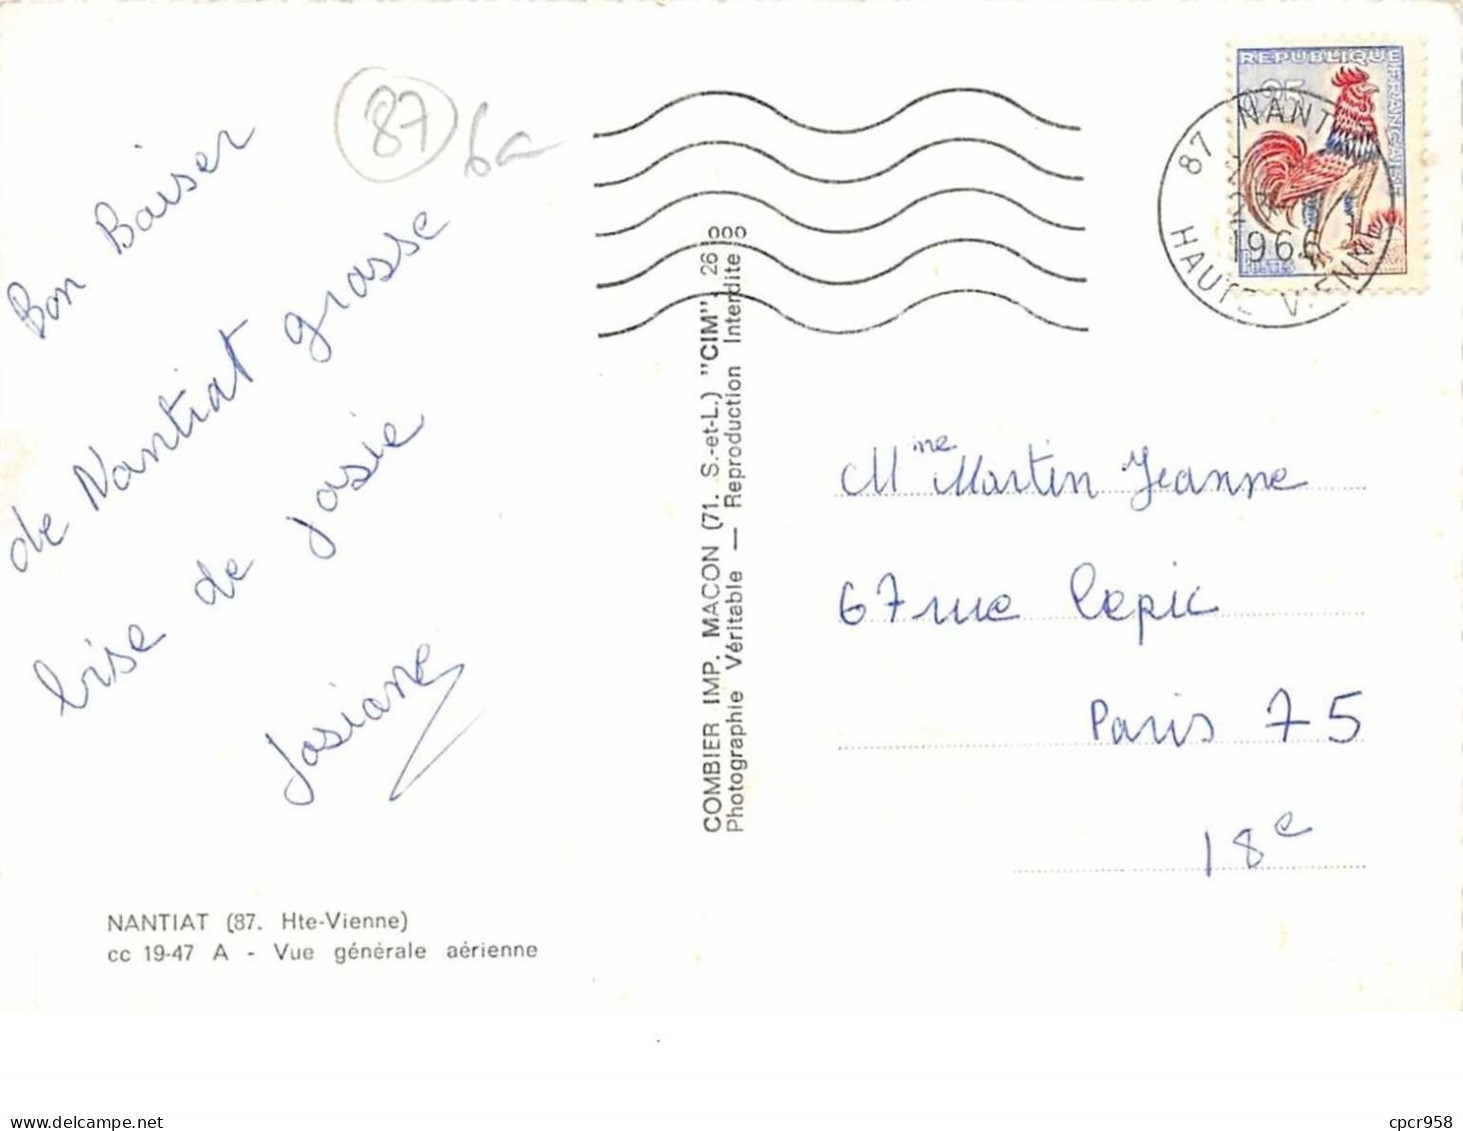 87
6a
Bon Baiser
de Nantiat grosse
bise de Josie
Josiane
NANTIAT (87. Hte-Vienne)
cc 19-47 A - Vue générale aérienne
COMBIER IMP. MACON (71. S.-et-L.) "CIM" 26
Photographie Véritable — Reproduction Interdite
REPUBLIQUE FRANÇAISE
0,25
87 NANTIAT
1966
HAUTE VIENNE
Mme Martin Jeanne
67 rue Lepic
Paris 75
18e
cpcr958